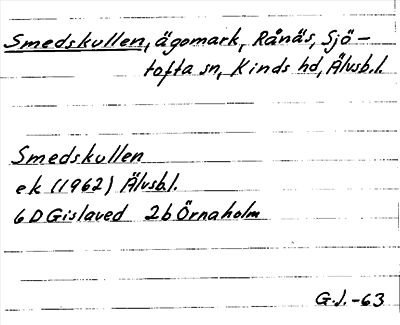 Smedskullen, ägomark, Rånäs, Sjö-
tofta sn, Kinds hd, Älvsb.l.
Smedskullen
ek (1962) Älvsb.l.
6D Gislaved 2b Örnaholm
G.J.-63